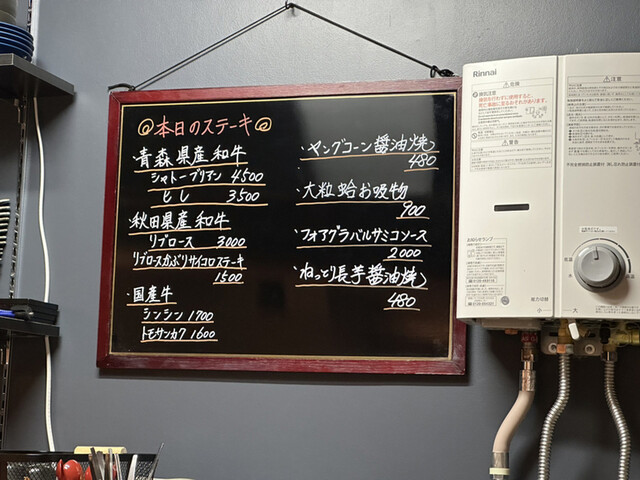 本日のステーキ
・青森県産和牛
シャトーブリアン 4500
ヒレ 3500
・秋田県産和牛
リブロース 3000
リブロースかぶりサイコロステーキ
1500
・国産牛
シンシン 1700
トモサンカク 1600
・ヤングコーン醤油焼
480
・大粒蛤お吸物
900
・フォアグラバルサミコソース
2000
・ねっとり長芋醤油焼
480
Rinnai
小
大